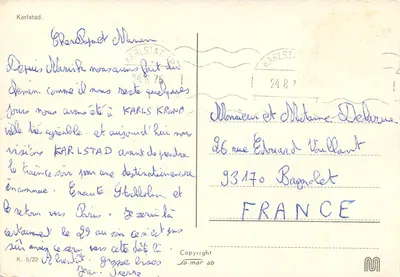 Karlstad.
Cher Papa et Maman
Depuis Munich nous avons fait du
chemin comme il nous reste quelques
jours nous avons été à KARLSKRONA
ville très agréable et aujourd'hui nous
visitons KARLSTAD avant de prendre
le train ce soir pour une destination encore
inconnue. Ensuite Stockholm et
le retour vers Paris. Je serai là
certainement le 29 au soir
à bientôt grosses bises
Jean-Pierre
KARLSTAD
24.8.76
KARLSTAD
24.8.7
Monsieur et Madame Delarue
26 rue Edouard Vaillant
93170 Bagnolet
FRANCE
K. 9/22
Copyright
Sa-mar ab